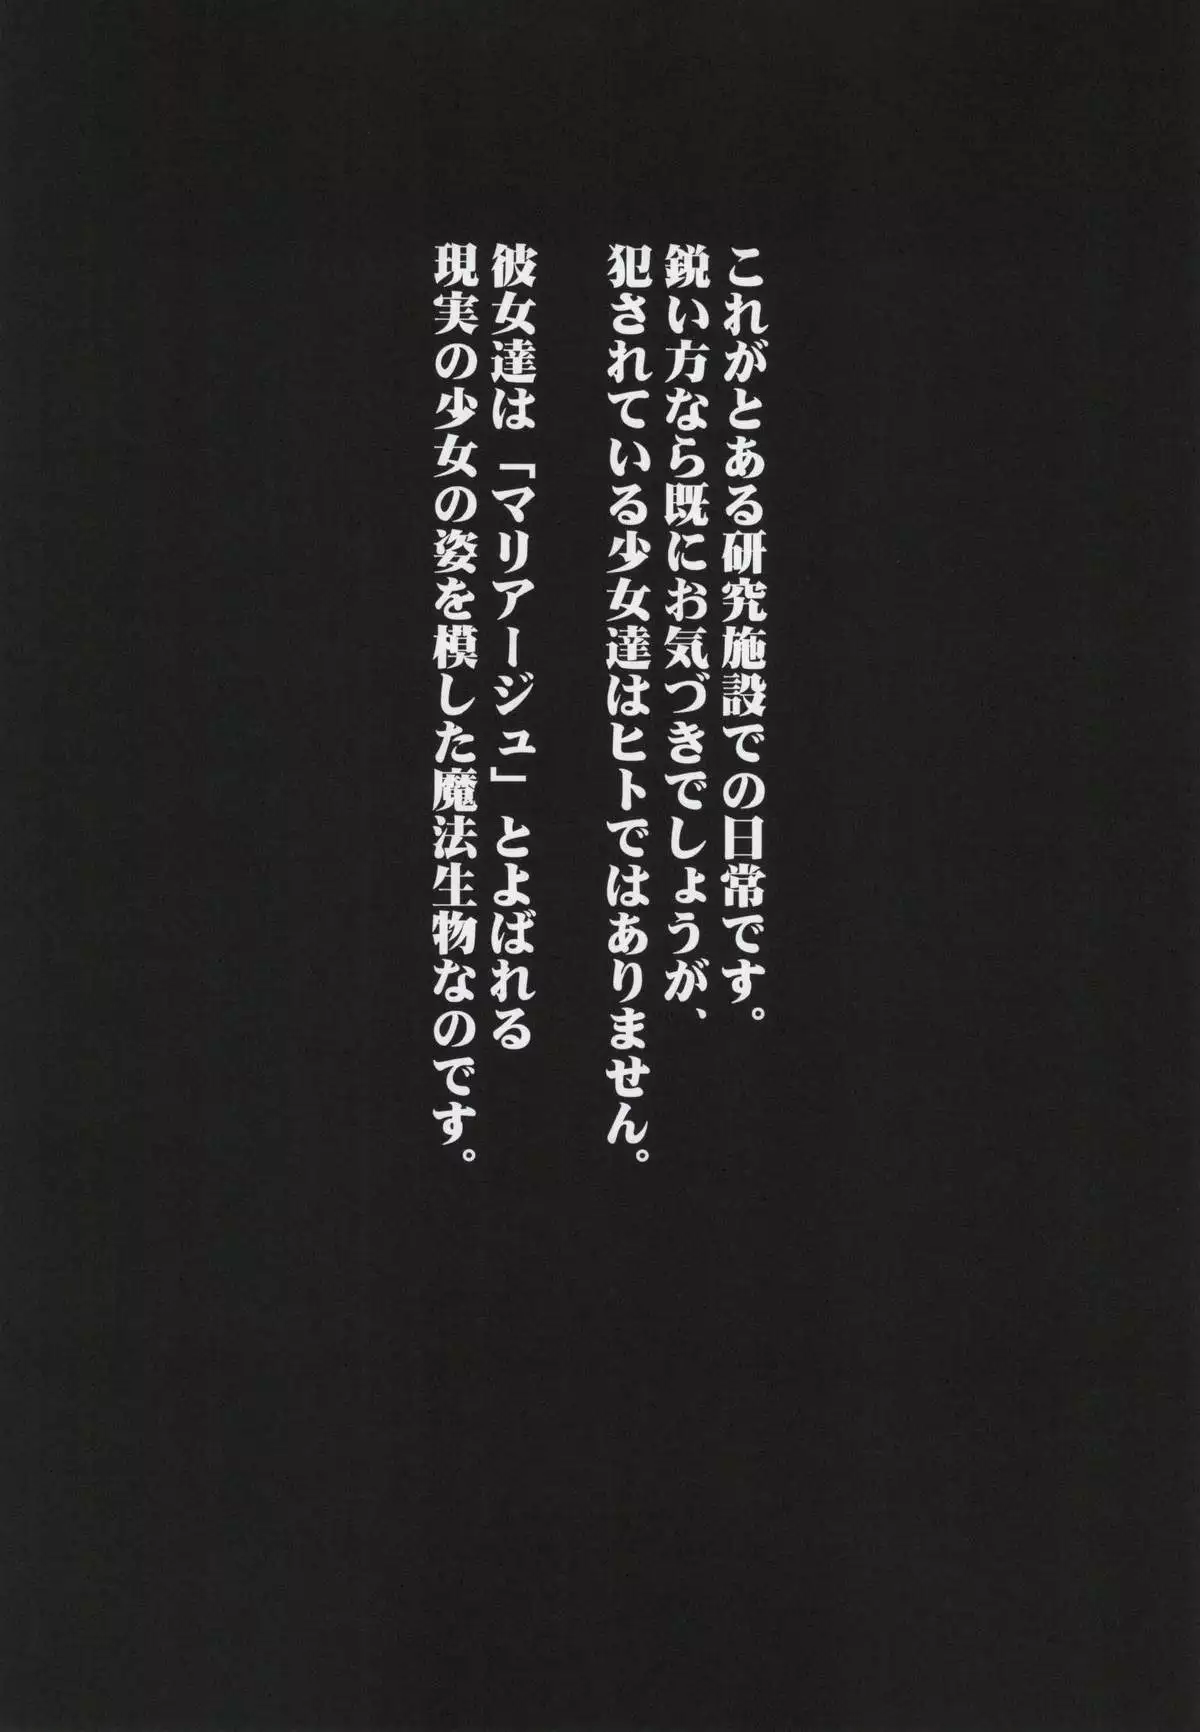 これがとある研究施設での日常です。
鋭い方なら既にお気づきでしょうが、
犯されている少女達はヒトではありません。
彼女達は「マリアージュ」とよばれる
現実の少女の姿を模した魔法生物なのです。